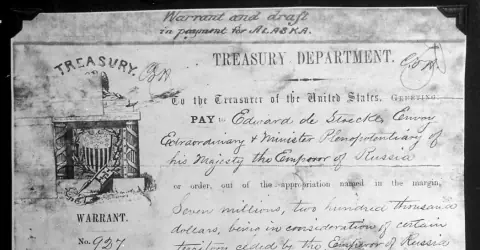 Warrant and draft
in payment for ALASKA.
TREASURY.
TREASURY DEPARTMENT.
To the Treasurer of the United States, GREETING.
PAY to Edward de Stoeckl, Envoy
Extraordinary & Minister Plenopotentiary of
his Majesty the Emperor of Russia
or order, out of the appropriation named in the margin,
Seven millions, two hundred thousand
dollars, being in consideration of certain
territory ceded by the Emperor of Russia
WARRANT.
No. 927